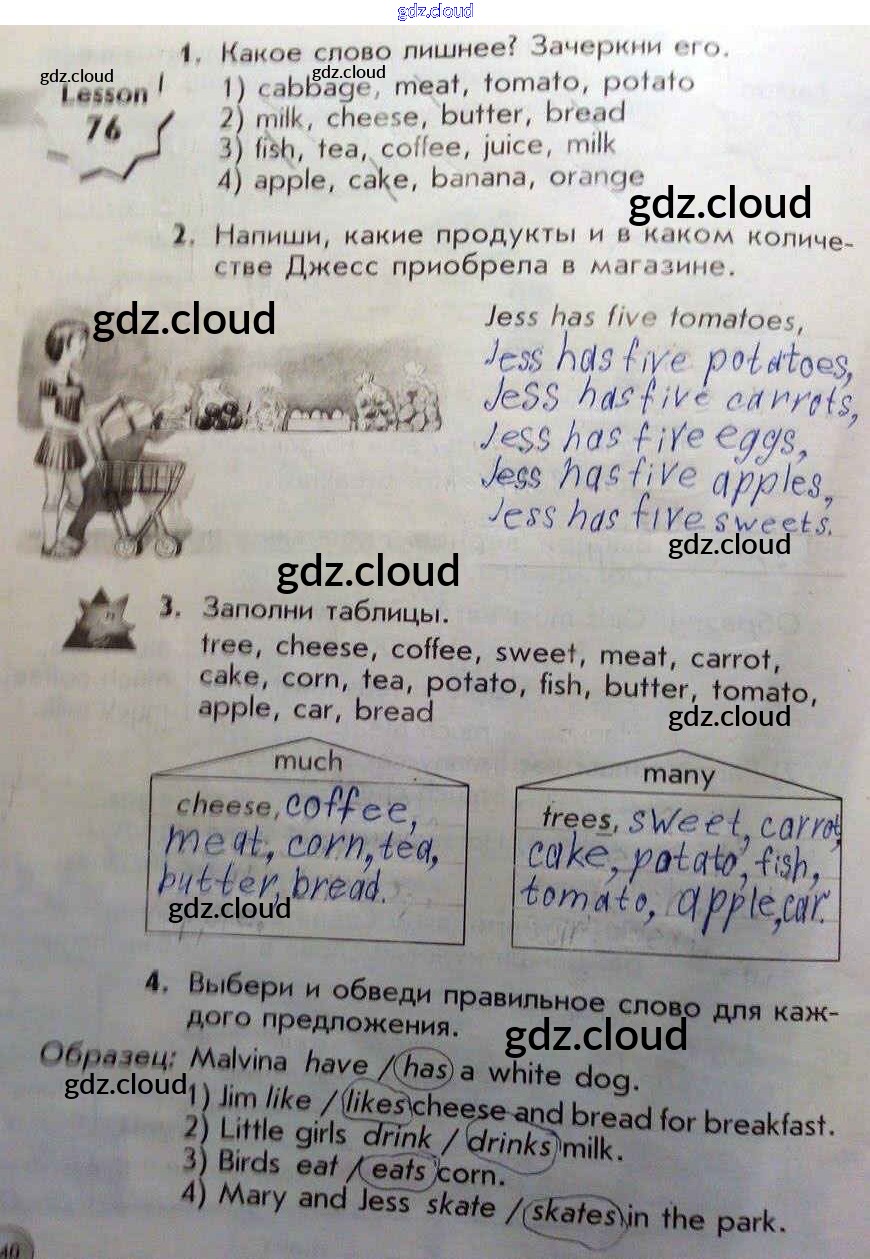 gdz.cloud
1. Какое слово лишнее? Зачеркни его.
gdz.cloud
gdz.cloud
Lesson
76
1) cabbage, meat, tomato, potato
2) milk, cheese, butter, bread
3) fish, tea, coffee, juice, milk
4) apple, cake, banana, orange
gdz.cloud
2. Напиши, какие продукты и в каком количе-
стве Джесс приобрела в магазине.
gdz.cloud
Jess has five tomatoes,
Jess has five potatoes,
Jess has five carrots,
Jess has five eggs,
Jess has five apples,
Jess has five sweets.
gdz.cloud
gdz.cloud
3. Заполни таблицы.
tree, cheese, coffee, sweet, meat, carrot,
cake, corn, tea, potato, fish, butter, tomato,
apple, car, bread
gdz.cloud
much
cheese, coffee,
meat, corn, tea,
butter, bread.
gdz.cloud
many
trees, sweet, carrot,
cake, potato, fish,
tomato, apple, car.
4. Выбери и обведи правильное слово для каж-
дого предложения.
gdz.cloud
Образец: Malvina have / has a white dog.
gdz.cloud
1) Jim like / likes cheese and bread for breakfast.
2) Little girls drink / drinks milk.
3) Birds eat / eats corn.
4) Mary and Jess skate / skates in the park.
40